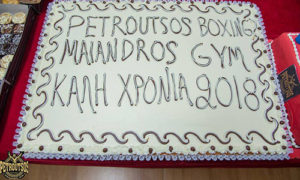 PETROUTSOS BOXING
MAIANDROS GYM
ΚΑΛΗ ΧΡΟΝΙΑ 2018
PETROUTSOS